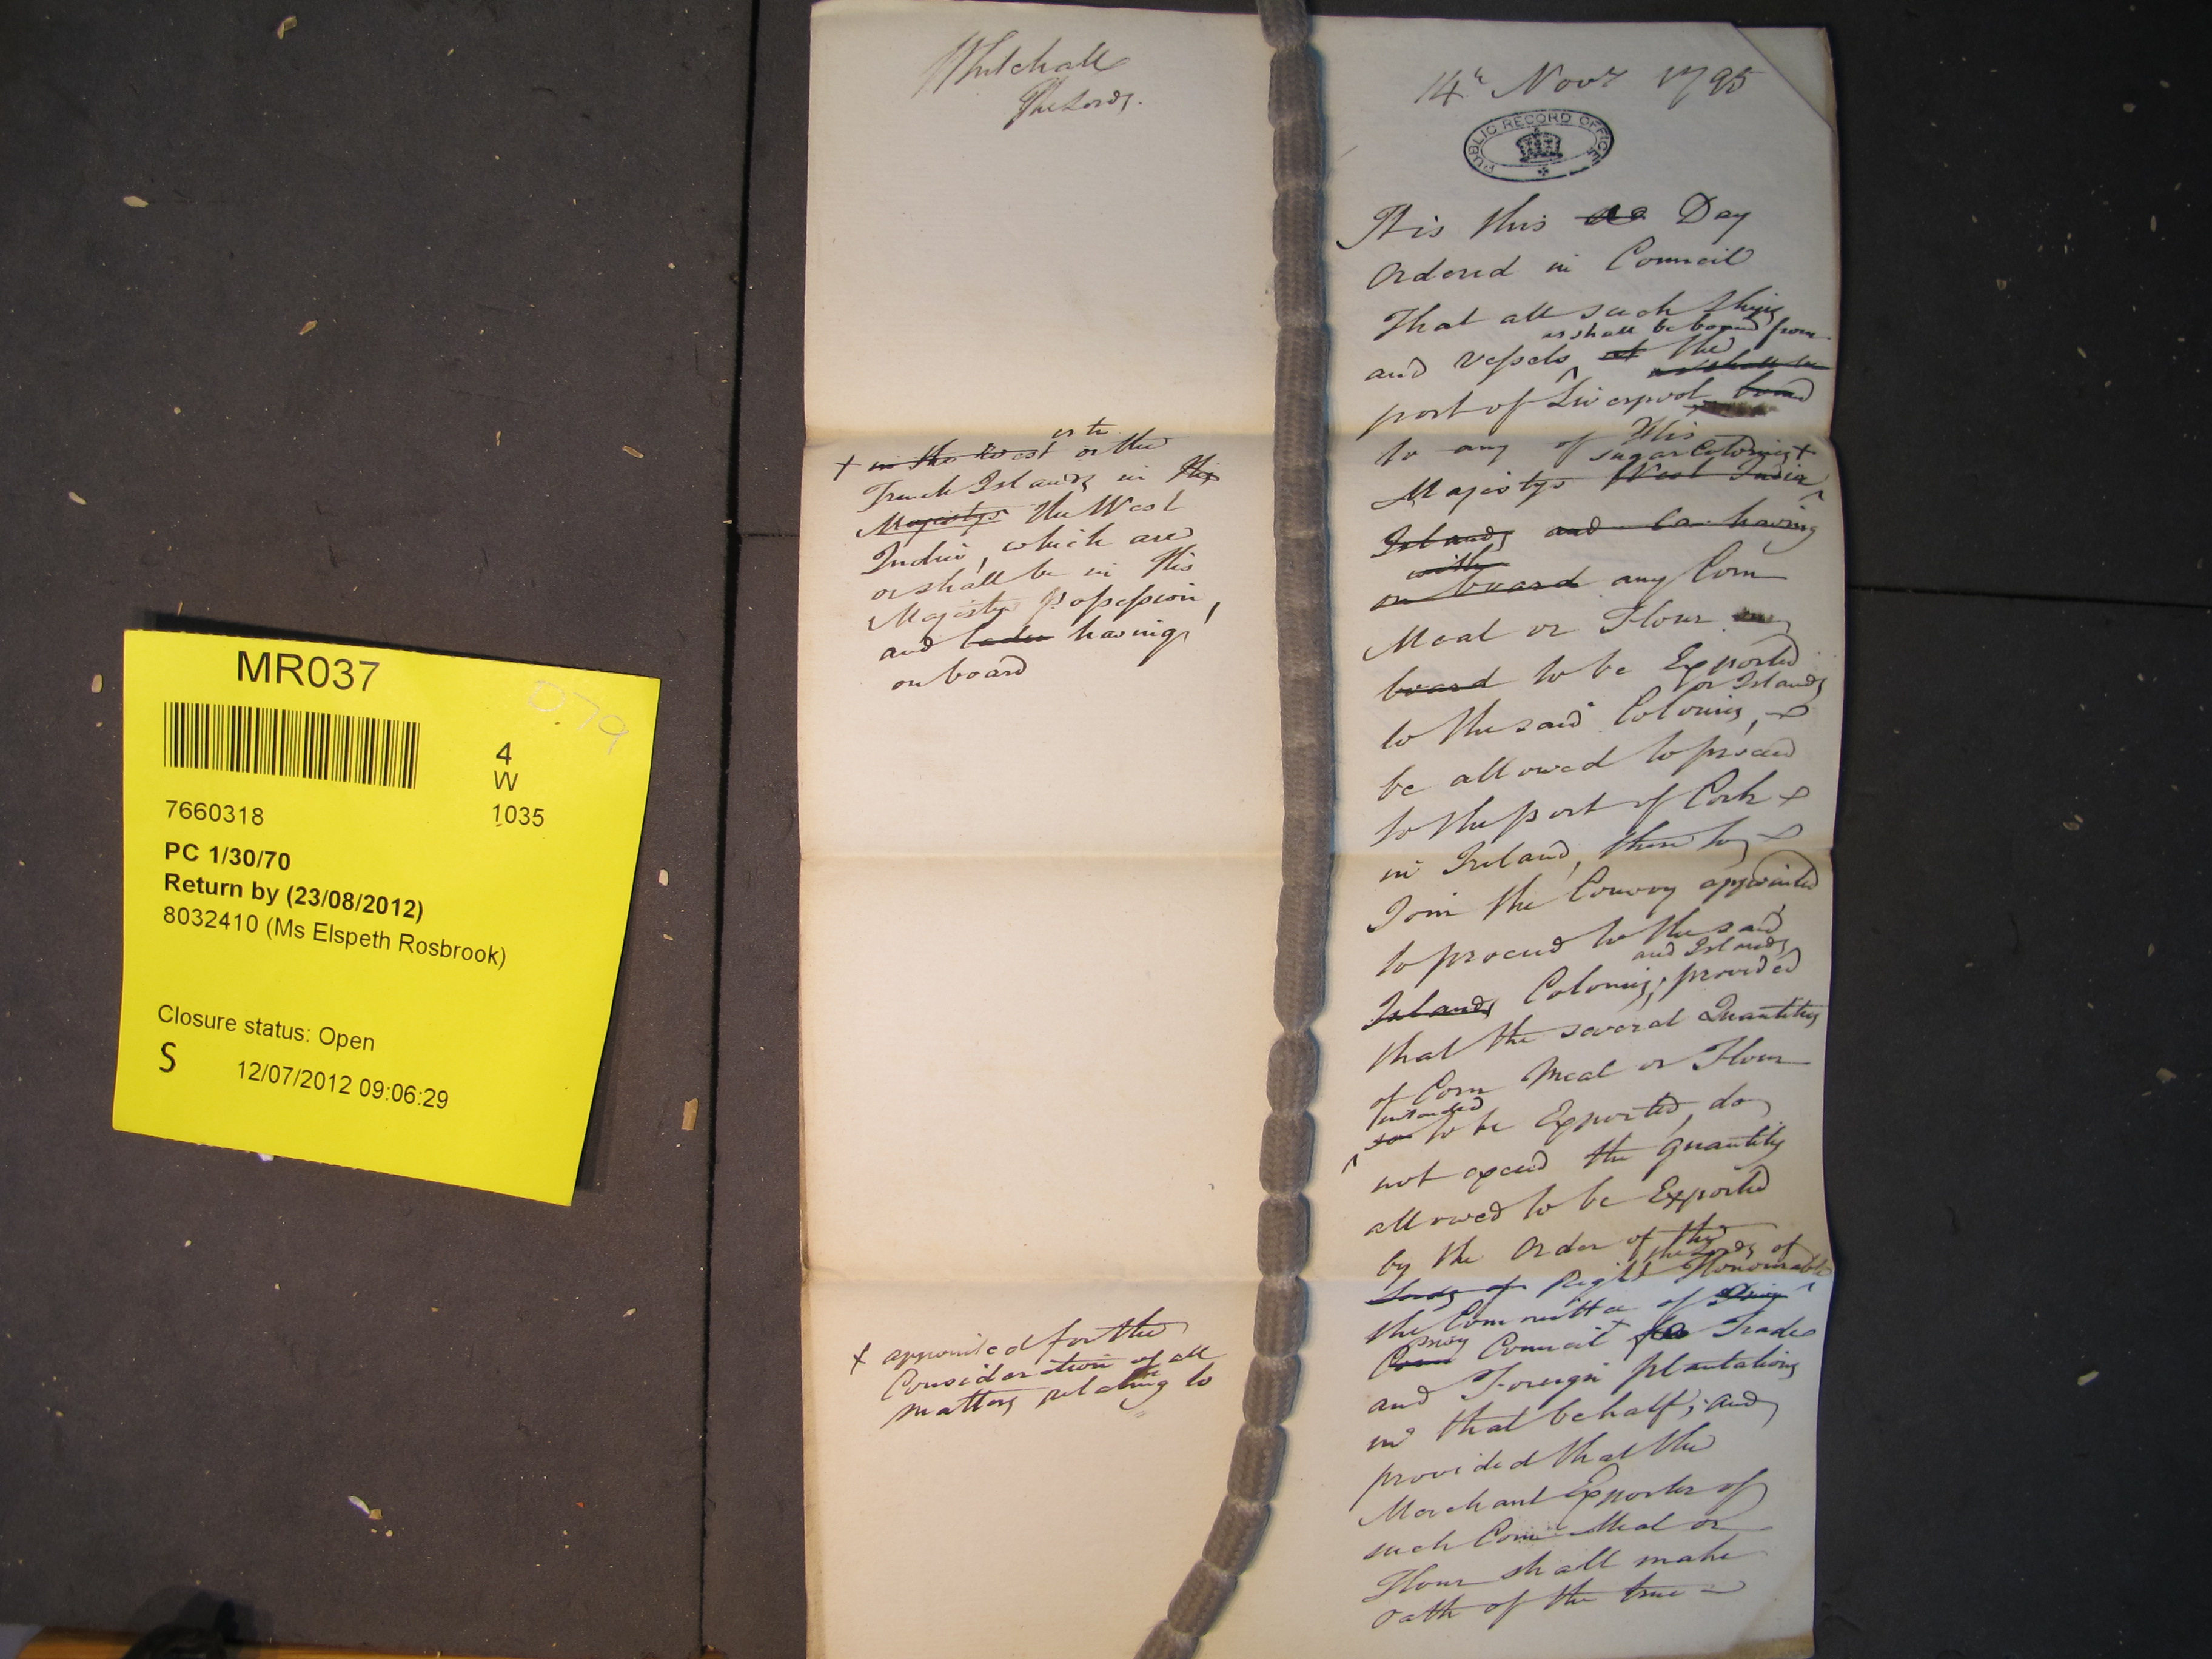 MR037
D79
4
W
7660318 1035
PC 1/30/70
Return by (23/08/2012)
8032410 (Ms Elspeth Rosbrook)
Closure status: Open
S 12/07/2012 09:06:29
Whitehall
The Lords.
+ in the West or the
French Islands in His
Majestys the West
Indies, which are
or shall be in His
Majestys Possession,
and laden having
on board
+ appointed for the
Consideration of all
matters relating to
14th Novr 1795
PUBLIC RECORD OFFICE
It is this Day
Ordered in Council
That all such Ships
as shall be bound from
and Vessels at the
as shall be
port of Liverpool bound
to any of His
Sugar Colonies +
Majestys West India
Islands and having
with
on board any Corn
Meal or Flour
board to be Exported
or Islands
to the said Colonies,
be allowed to proceed
to the port of Cork
in Ireland, there to
Join the Convoy appointed
to proceed to the said
and Islands
Islands Colonies, provided
that the several Quantities
of Corn Meal or Flour
intended
so to be Exported, do
not exceed the quantity
allowed to be Exported
by the Order of the
the Lords of
Lords of Right Honourable
the Committee of Privy
Privy
Council + for Trade
and Foreign plantations
in that behalf; and
provided that the
Merchant Exporter of
such Corn Meal or
Flour shall make
Oath of the true